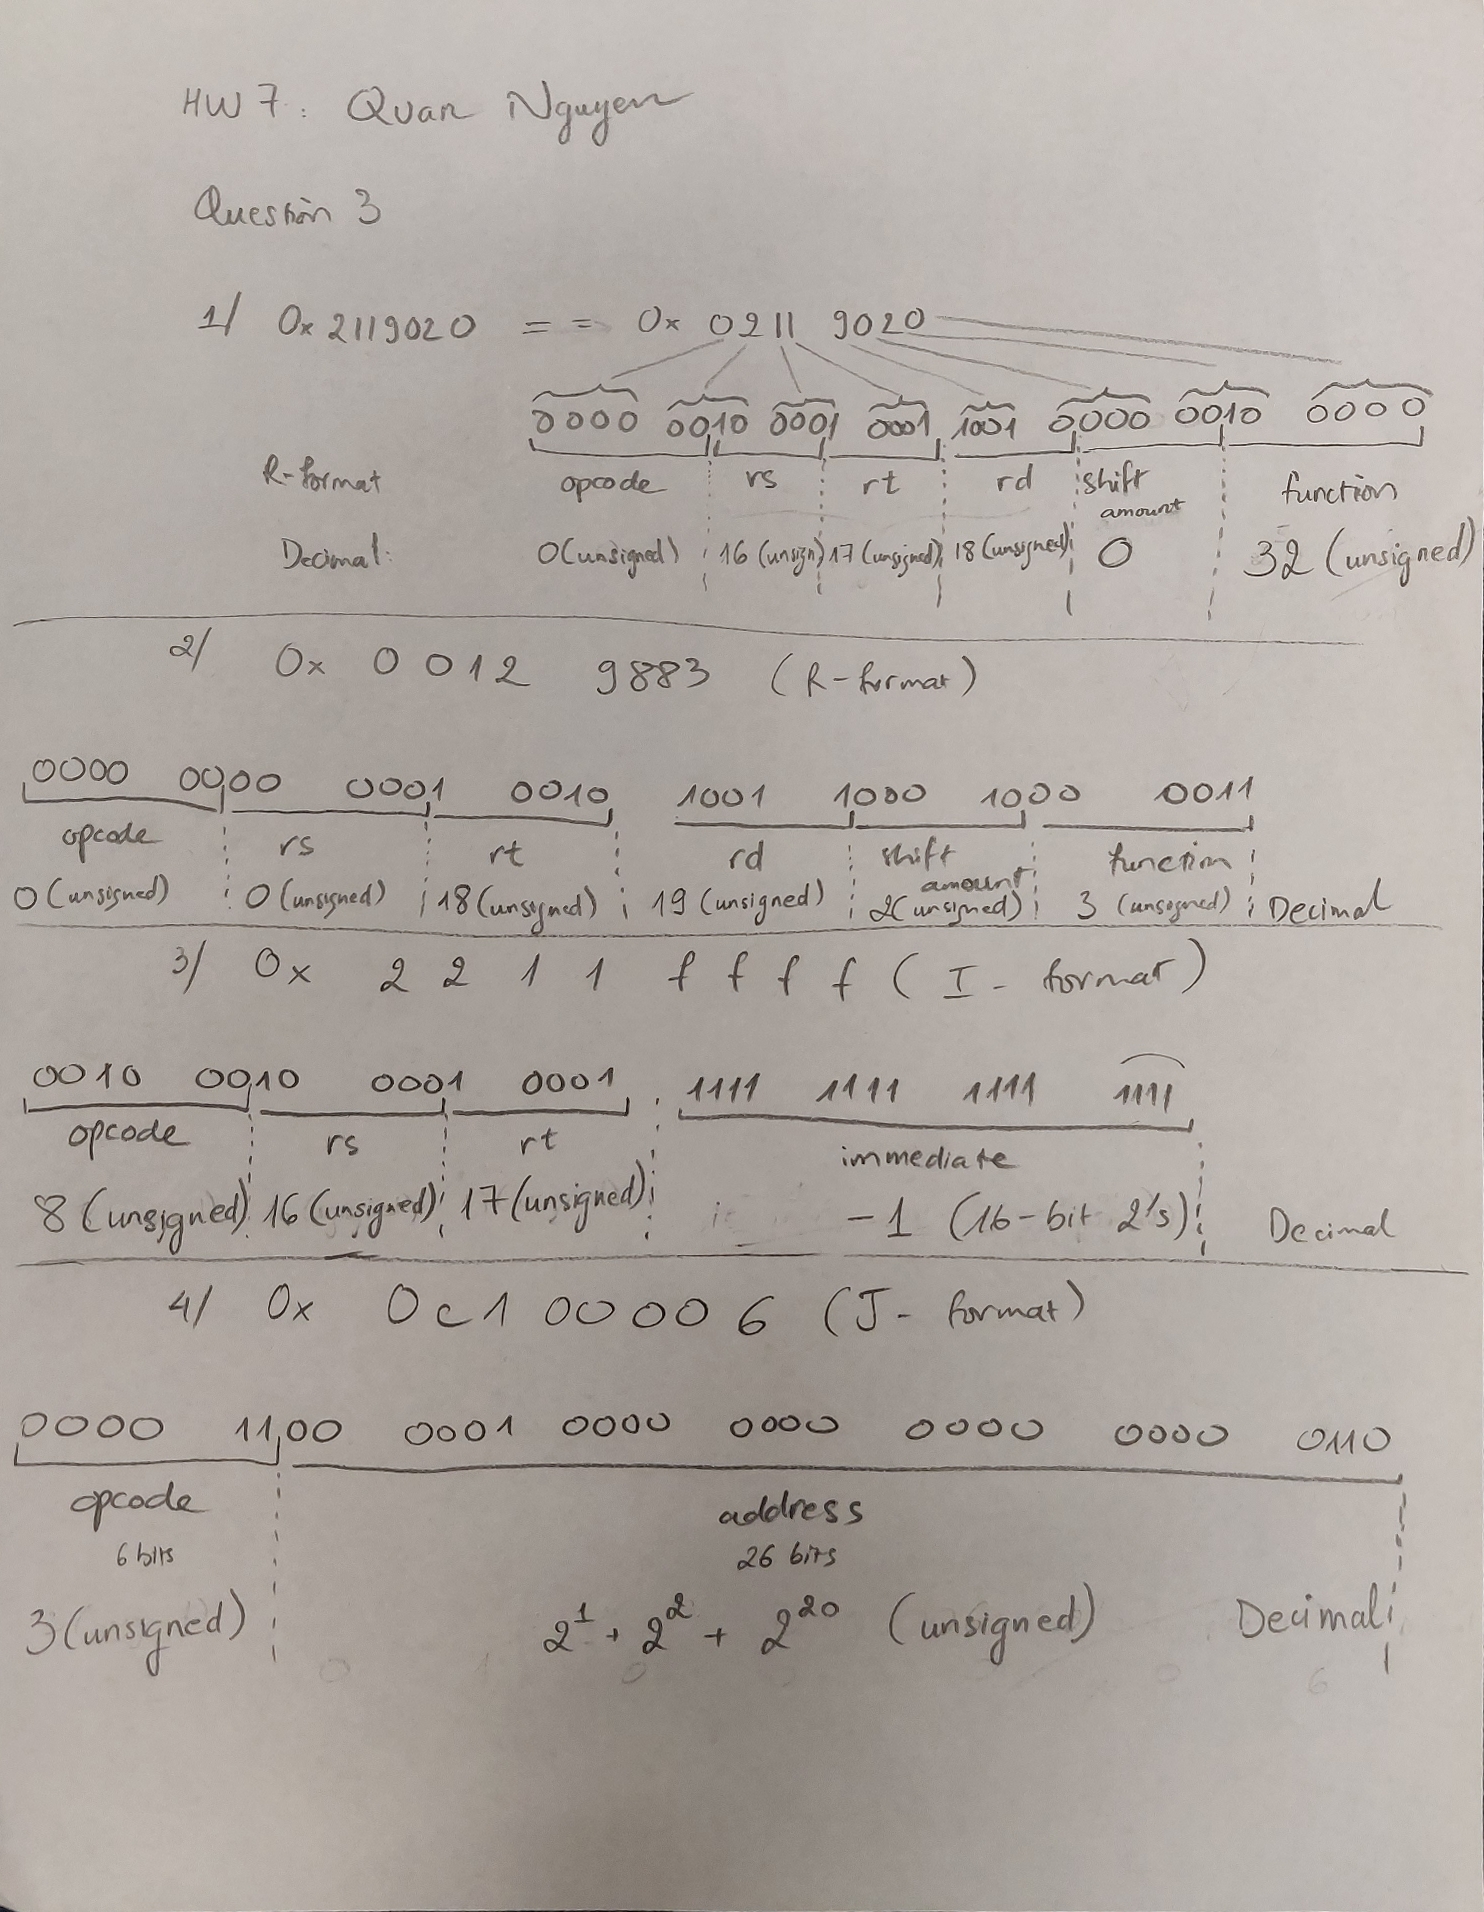 HW 7: Quan Nguyen
Question 3
1/ 0x 2119020 = = 0x 0211 9020
0000 0010 0001 0001 1001 0000 0010 0000
R-format opcode rs rt rd shift amount function
Decimal: 0 (unsigned) 16 (unsign) 17 (unsigned) 18 (unsigned) 0 32 (unsigned)
2/ 0x 0012 9883 (R-format)
0000 0000 0001 0010 1001 1000 1000 0011
opcode rs rt rd shift amount function
0 (unsigned) 0 (unsigned) 18 (unsigned) 19 (unsigned) 2 (unsigned) 3 (unsigned) Decimal
3/ 0x 2 2 1 1 f f f f (I-format)
0010 0010 0001 0001 1111 1111 1111 1111
opcode rs rt immediate
8 (unsigned) 16 (unsigned) 17 (unsigned) -1 (16-bit 2's) Decimal
4/ 0x 0c1 0000 6 (J-format)
0000 1100 0001 0000 0000 0000 0000 0110
opcode address
6 bits 26 bits
3 (unsigned) 2^1 + 2^2 + 2^20 (unsigned) Decimal